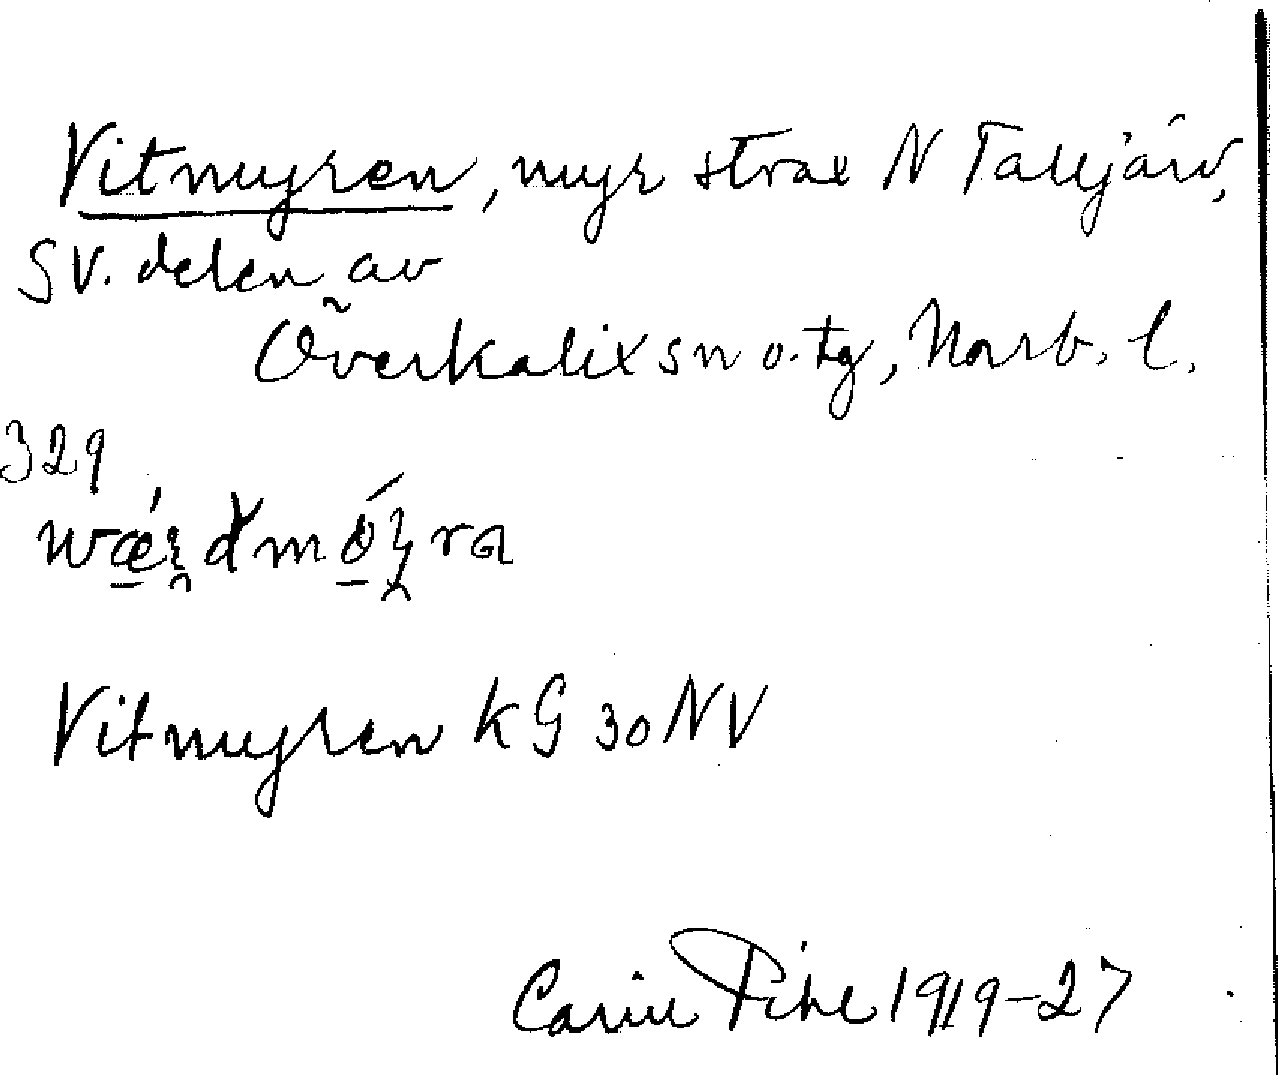 Vitmyren, myr strax N Talljärv,
SV. delen av
Överkalix sn o. tg, Norrb. l.
329
Vitmyren KG 30 NV
Carin Pihl 1919-27